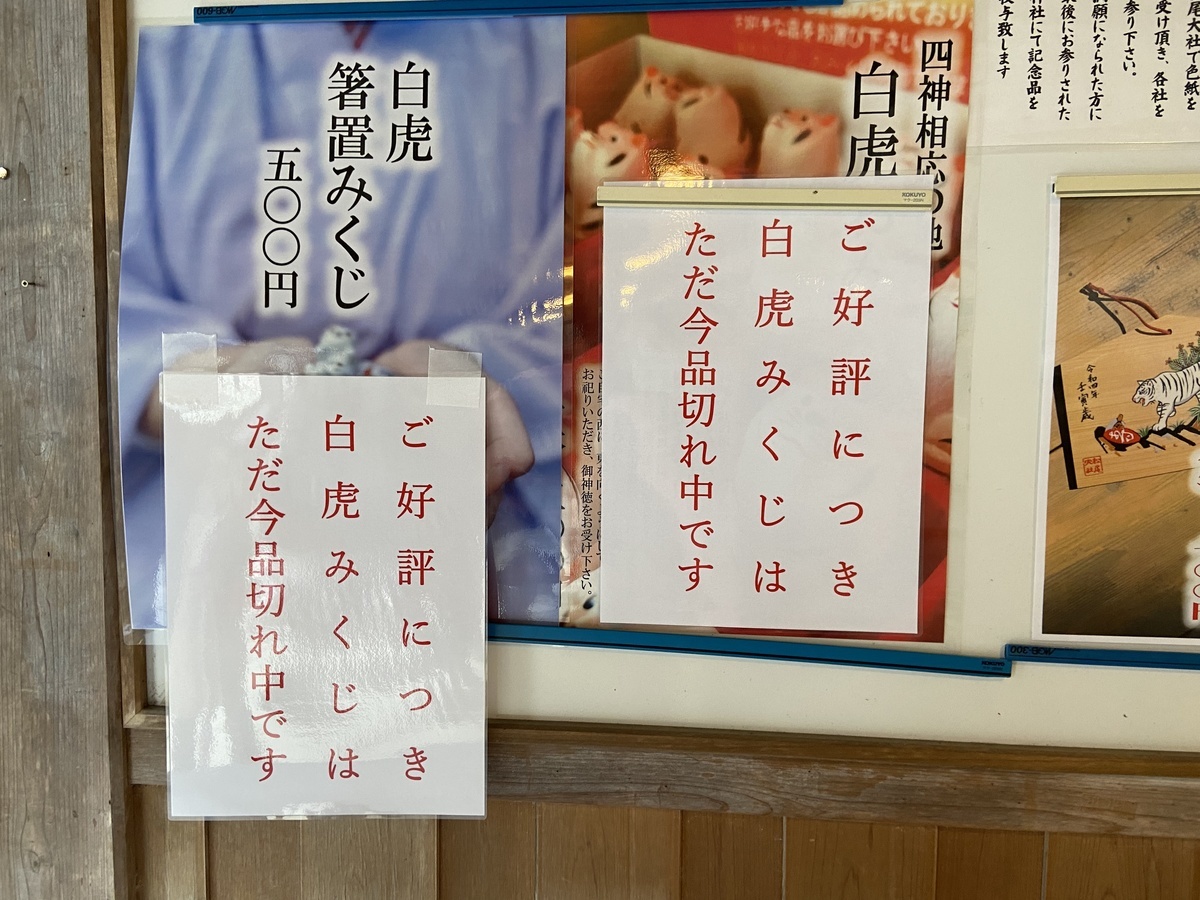 白虎
箸置みくじ
五〇〇円
ご好評につき
白虎みくじは
ただ今品切れ中です
四神相応の地
白虎
お祀りいただき、御神徳をお受け下さい。
KOKUYO
ご好評につき
白虎みくじは
ただ今品切れ中です
尾大社で色紙を
受け頂き、各社を
参り下さい。
願になられた方に
後にお参りされた
神社にて記念品を
授与致します
令和四年
壬寅歳
KOKUYO